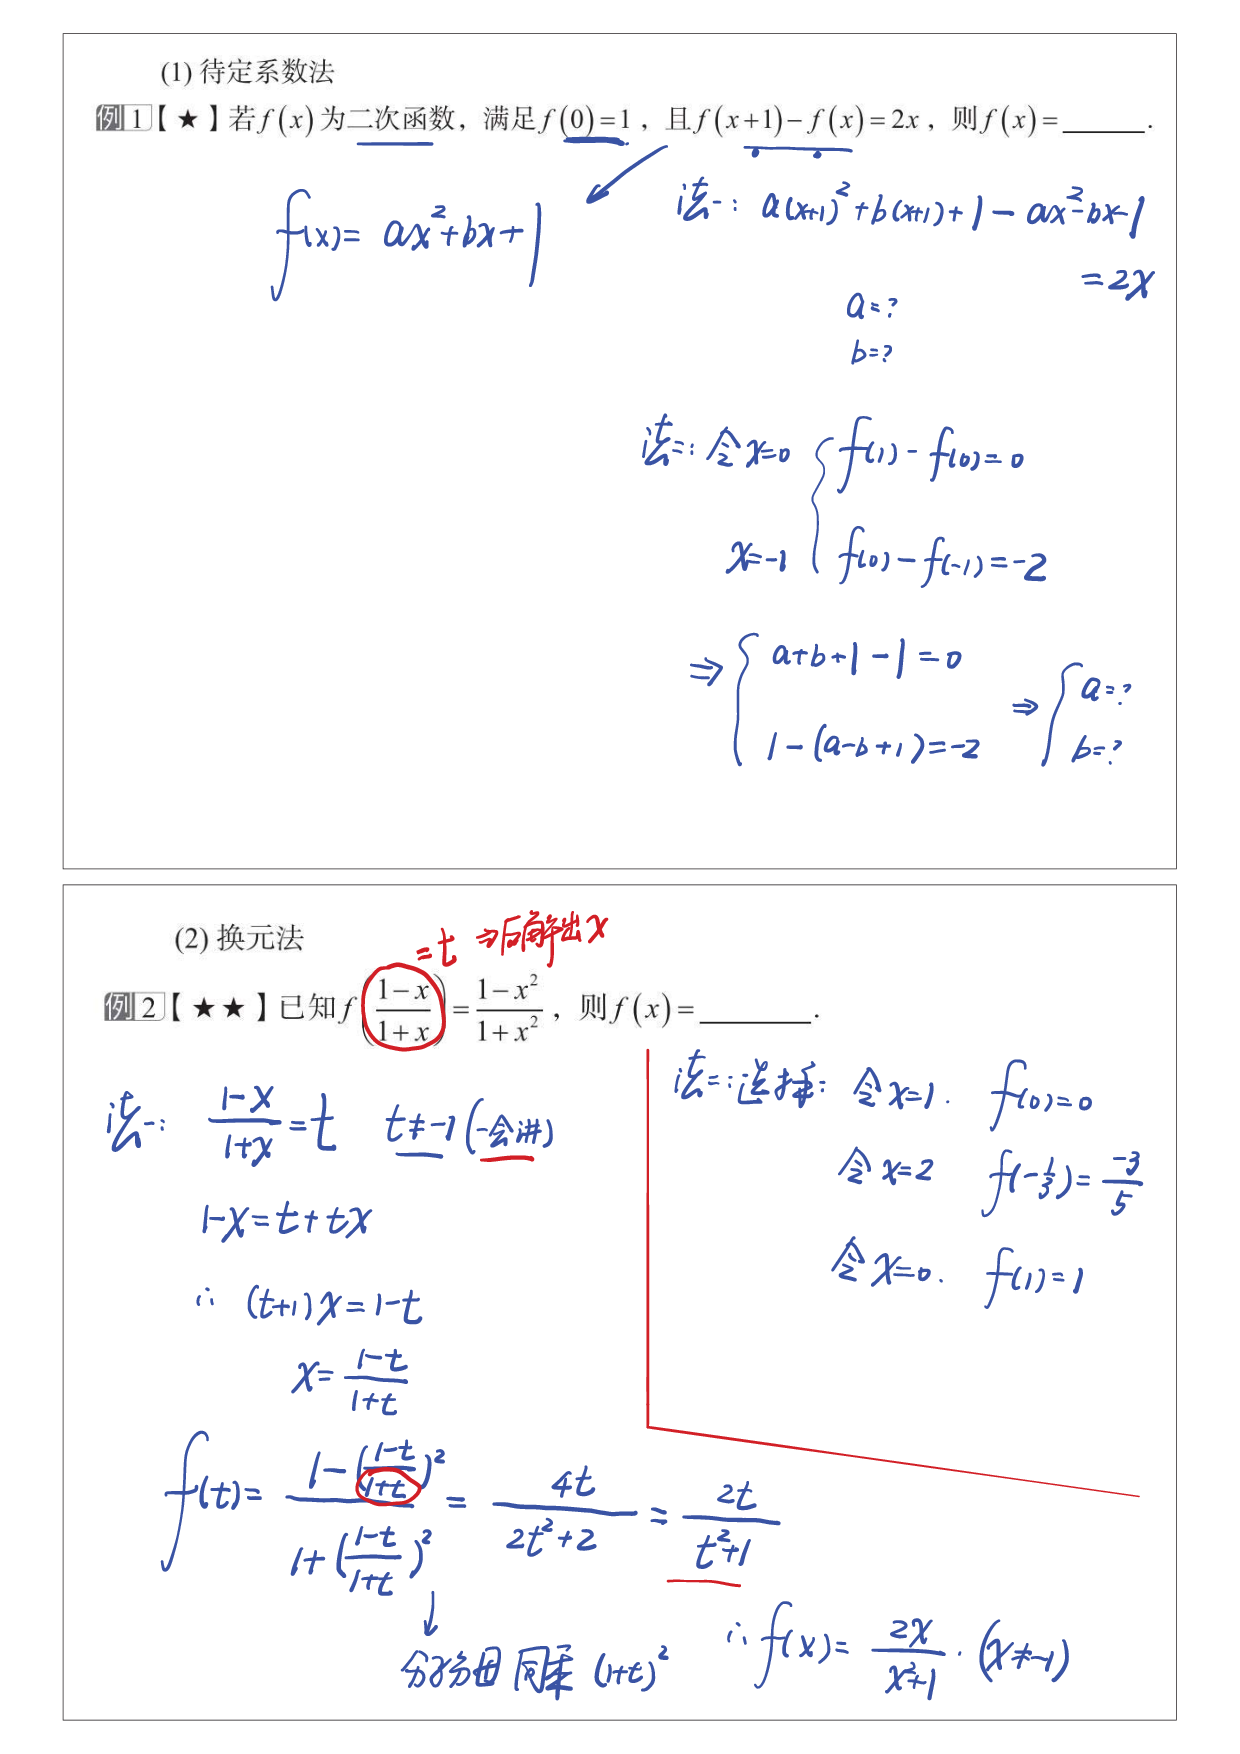 (1) 待定系数法
例 1【 ★ 】若 f(x) 为二次函数，满足 f(0)=1，且 f(x+1)−f(x)=2x，则 f(x)=______.
f(x)= ax²+bx+1
法一: a(x+1)²+b(x+1)+1−ax²−bx−1
=2x
a=?
b=?
法二: 令x=0 { f(1)−f(0)=0
x=-1 f(0)−f(-1)=-2
⇒ { a+b+1−1=0
1−(a-b+1)=-2 ⇒ { a=?
b=?
(2) 换元法
=t ⇒反解出x
例 2【 ★★ 】已知 f((1−x)/(1+x)) = (1−x²)/(1+x²)，则 f(x)=________.
法一: (1-x)/(1+x)=t t≠-1(一会讲)
1-x=t+tx
∴ (t+1)x=1-t
x= (1-t)/(1+t)
f(t)= (1−((1-t)/(1+t))²)/(1+((1-t)/(1+t))²) = 4t/(2t²+2) = 2t/(t²+1)
↓
分子分母同乘(1+t)²
∴ f(x)= 2x/(x²+1) . (x≠-1)
法二:选择: 令x=1. f(0)=0
令x=2 f(-1/3)= -3/5
令x=0. f(1)=1